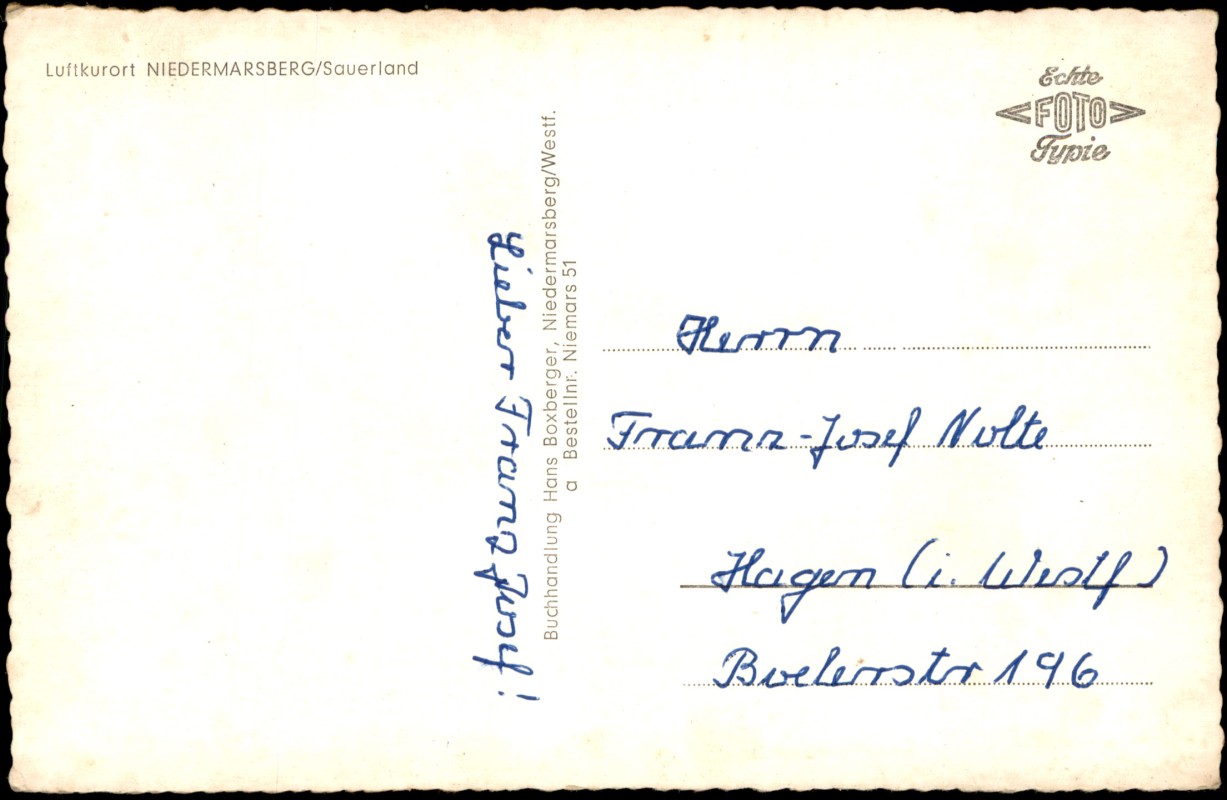 Luftkurort NIEDERMARSBERG/Sauerland
Echte
FOTO
Typie
Buchhandlung Hans Boxberger, Niedermarsberg/Westf.
a Bestellnr. Niemars 51
Lieber Franz Josef!
Herrn
Franz-Josef Nolte
Hagen (i. Westf)
Boelerstr 196